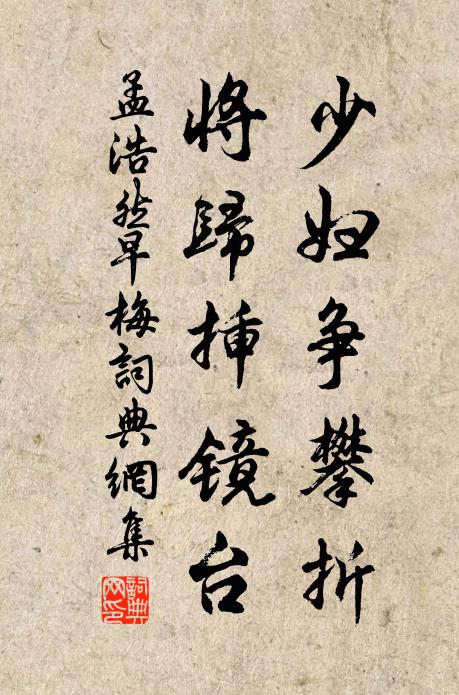 少妇争攀折
将歸挿镜台
孟浩然早梅詞典網集
詞典网印